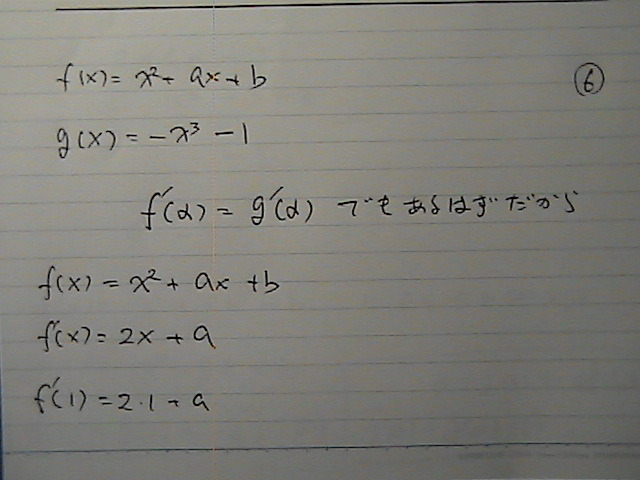 f(x) = x² + ax + b
⑥
g(x) = -x³ - 1
f'(α) = g'(α) でもあるはずだから
f(x) = x² + ax + b
f'(x) = 2x + a
f'(1) = 2・1 + a